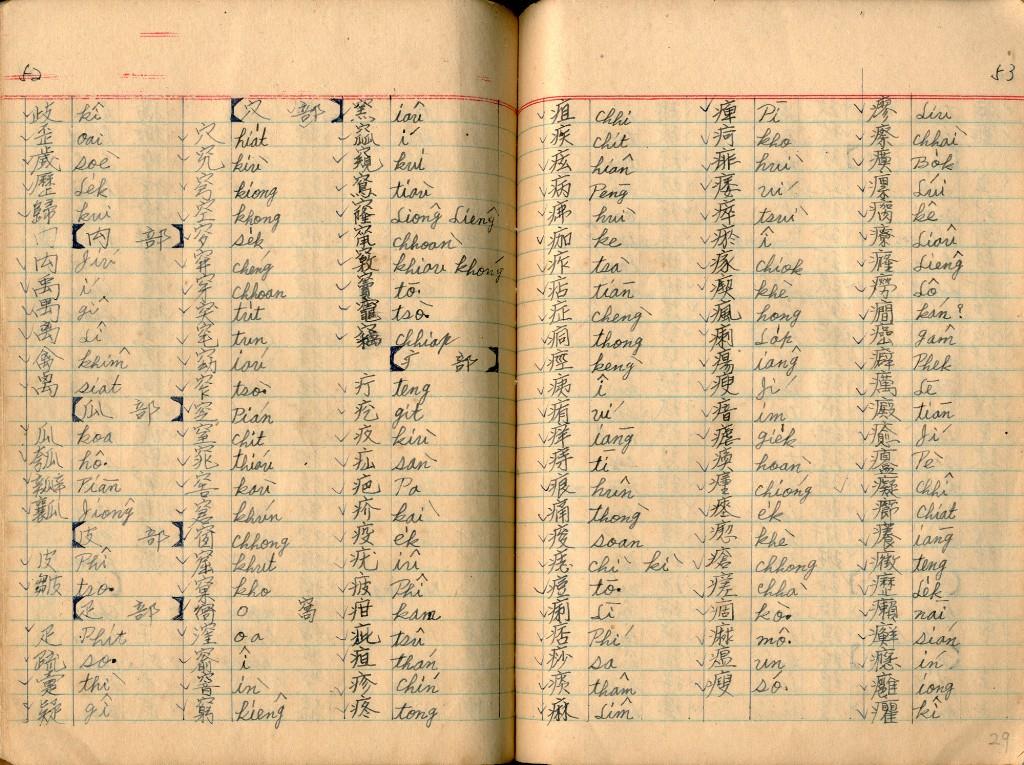 52
歧 kî
歪 oai
歲 soè
歷 Le̍k
歸 kui
禸 部
禸 Jiú
禹 í
禺 gî
离 Lî
禽 khîm
禼 siat
瓜 部
瓜 koa
瓠 hô·
瓣 Piān
瓤 Jiông
皮 部
皮 Phî
皺 tso·
疋 部
疋 Phit
疏 so·
疐 thì
疑 gî
穴 部
穴 hia̍t
究 kiù
穹 kiong
空 khong
穸 se̍k
穽 chéng
穿 chhoan
突 tu̍t
窀 tun
窈 iáu
窄 tsò·
窆 Pián
窒 chit
窕 thiáu
窖 kàu
窘 khún
窗 chhong
窟 khut
窠 kho
窩 o 窩
窪 oa
窬 î
窨 ìn
窮 kiêng
窯 iâu
窳 í
窺 kui
窵 tiàu
窿 Liông Liêng
竄 chhoàn
竅 khiau khóng
竇 tō·
竈 tsò·
竊 chhiap
疒 部
疔 teng
疙 git
疚 kiù
疝 sàn
疤 Pa
疥 kài
疫 e̍k
疣 iû
疲 Phî
疳 kam
疵 tsû
疸 thán
疹 chín
疼 tong
53
疽 chhi
疾 chit
痃 hiân
病 Pēng
疿 huì
痂 ke
痄 tsà
痁 tiàn
症 chèng
痌 thong
痙 kēng
痍 î
痏 ví
痒 iāng
痔 tī
痕 hûn
痛 thòng
痠 soan
痣 chì kì
痘 tō·
痢 Lī
痞 Phí
痧 sa
痰 thâm
痳 Lîm
痺 Pì
疴 kho
痱 huì
痿 ví
瘁 tsuì
瘀 î
瘃 chiok
瘈 khè
瘋 hong
瘌 La̍p
瘍 iâng
瘐 Jí
瘖 im
瘧 gie̍k
瘓 hoàn
瘇 chióng
瘞 ek
瘛 khè
瘡 chhong
瘥 chhà
痼 kò·
痲 mô·
瘟 un
瘦 só·
瘳 Liu
瘵 chhài
瘼 Bo̍k
瘰 Lúi
瘸 kê
療 Liâu
癃 Liêng
癆 Lô
癇 kán?
癌 gâm
癖 Phek
癘 Lē
癜 tiān
癒 Jí
癟 Pè
癡 chhî
癤 chiat
癢 iāng
癥 teng
癧 Le̍k
癩 nai
癬 sián
癮 ín
癰 iong
癯 kî
29